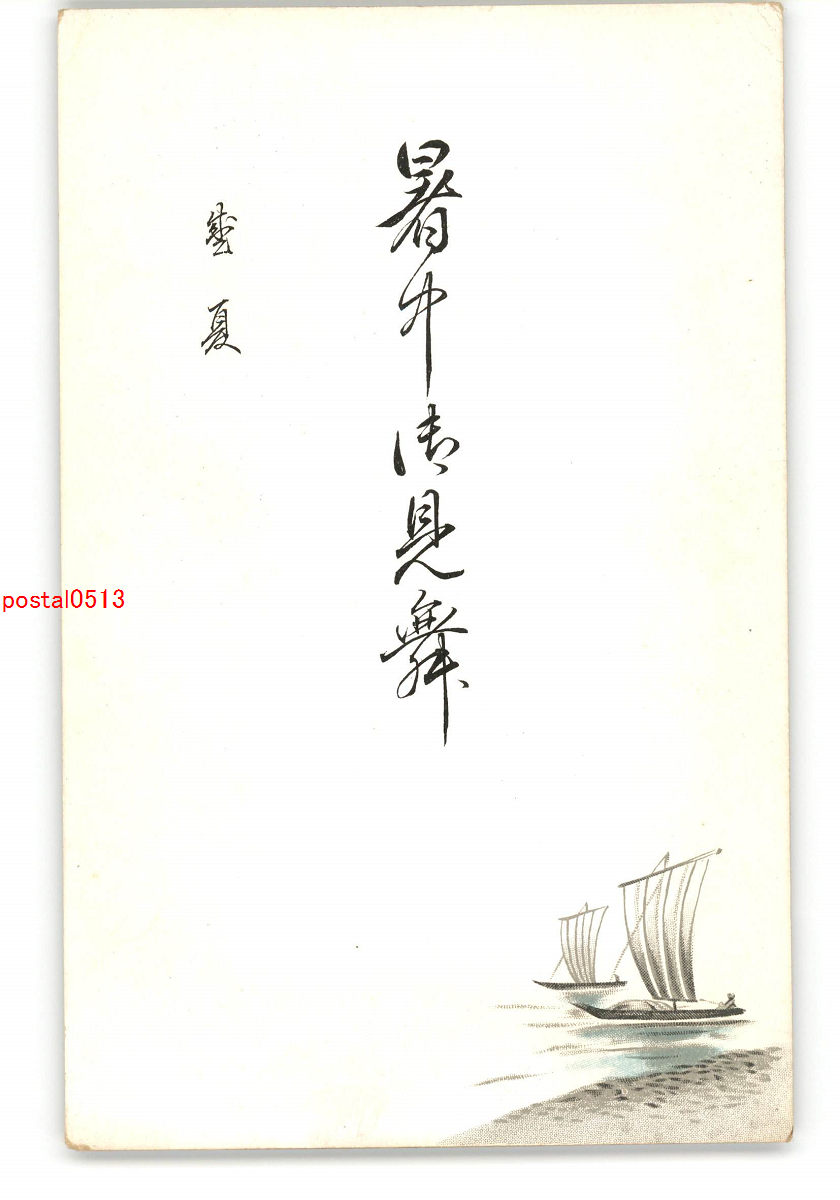 暑中御見舞
盛夏
postal0513